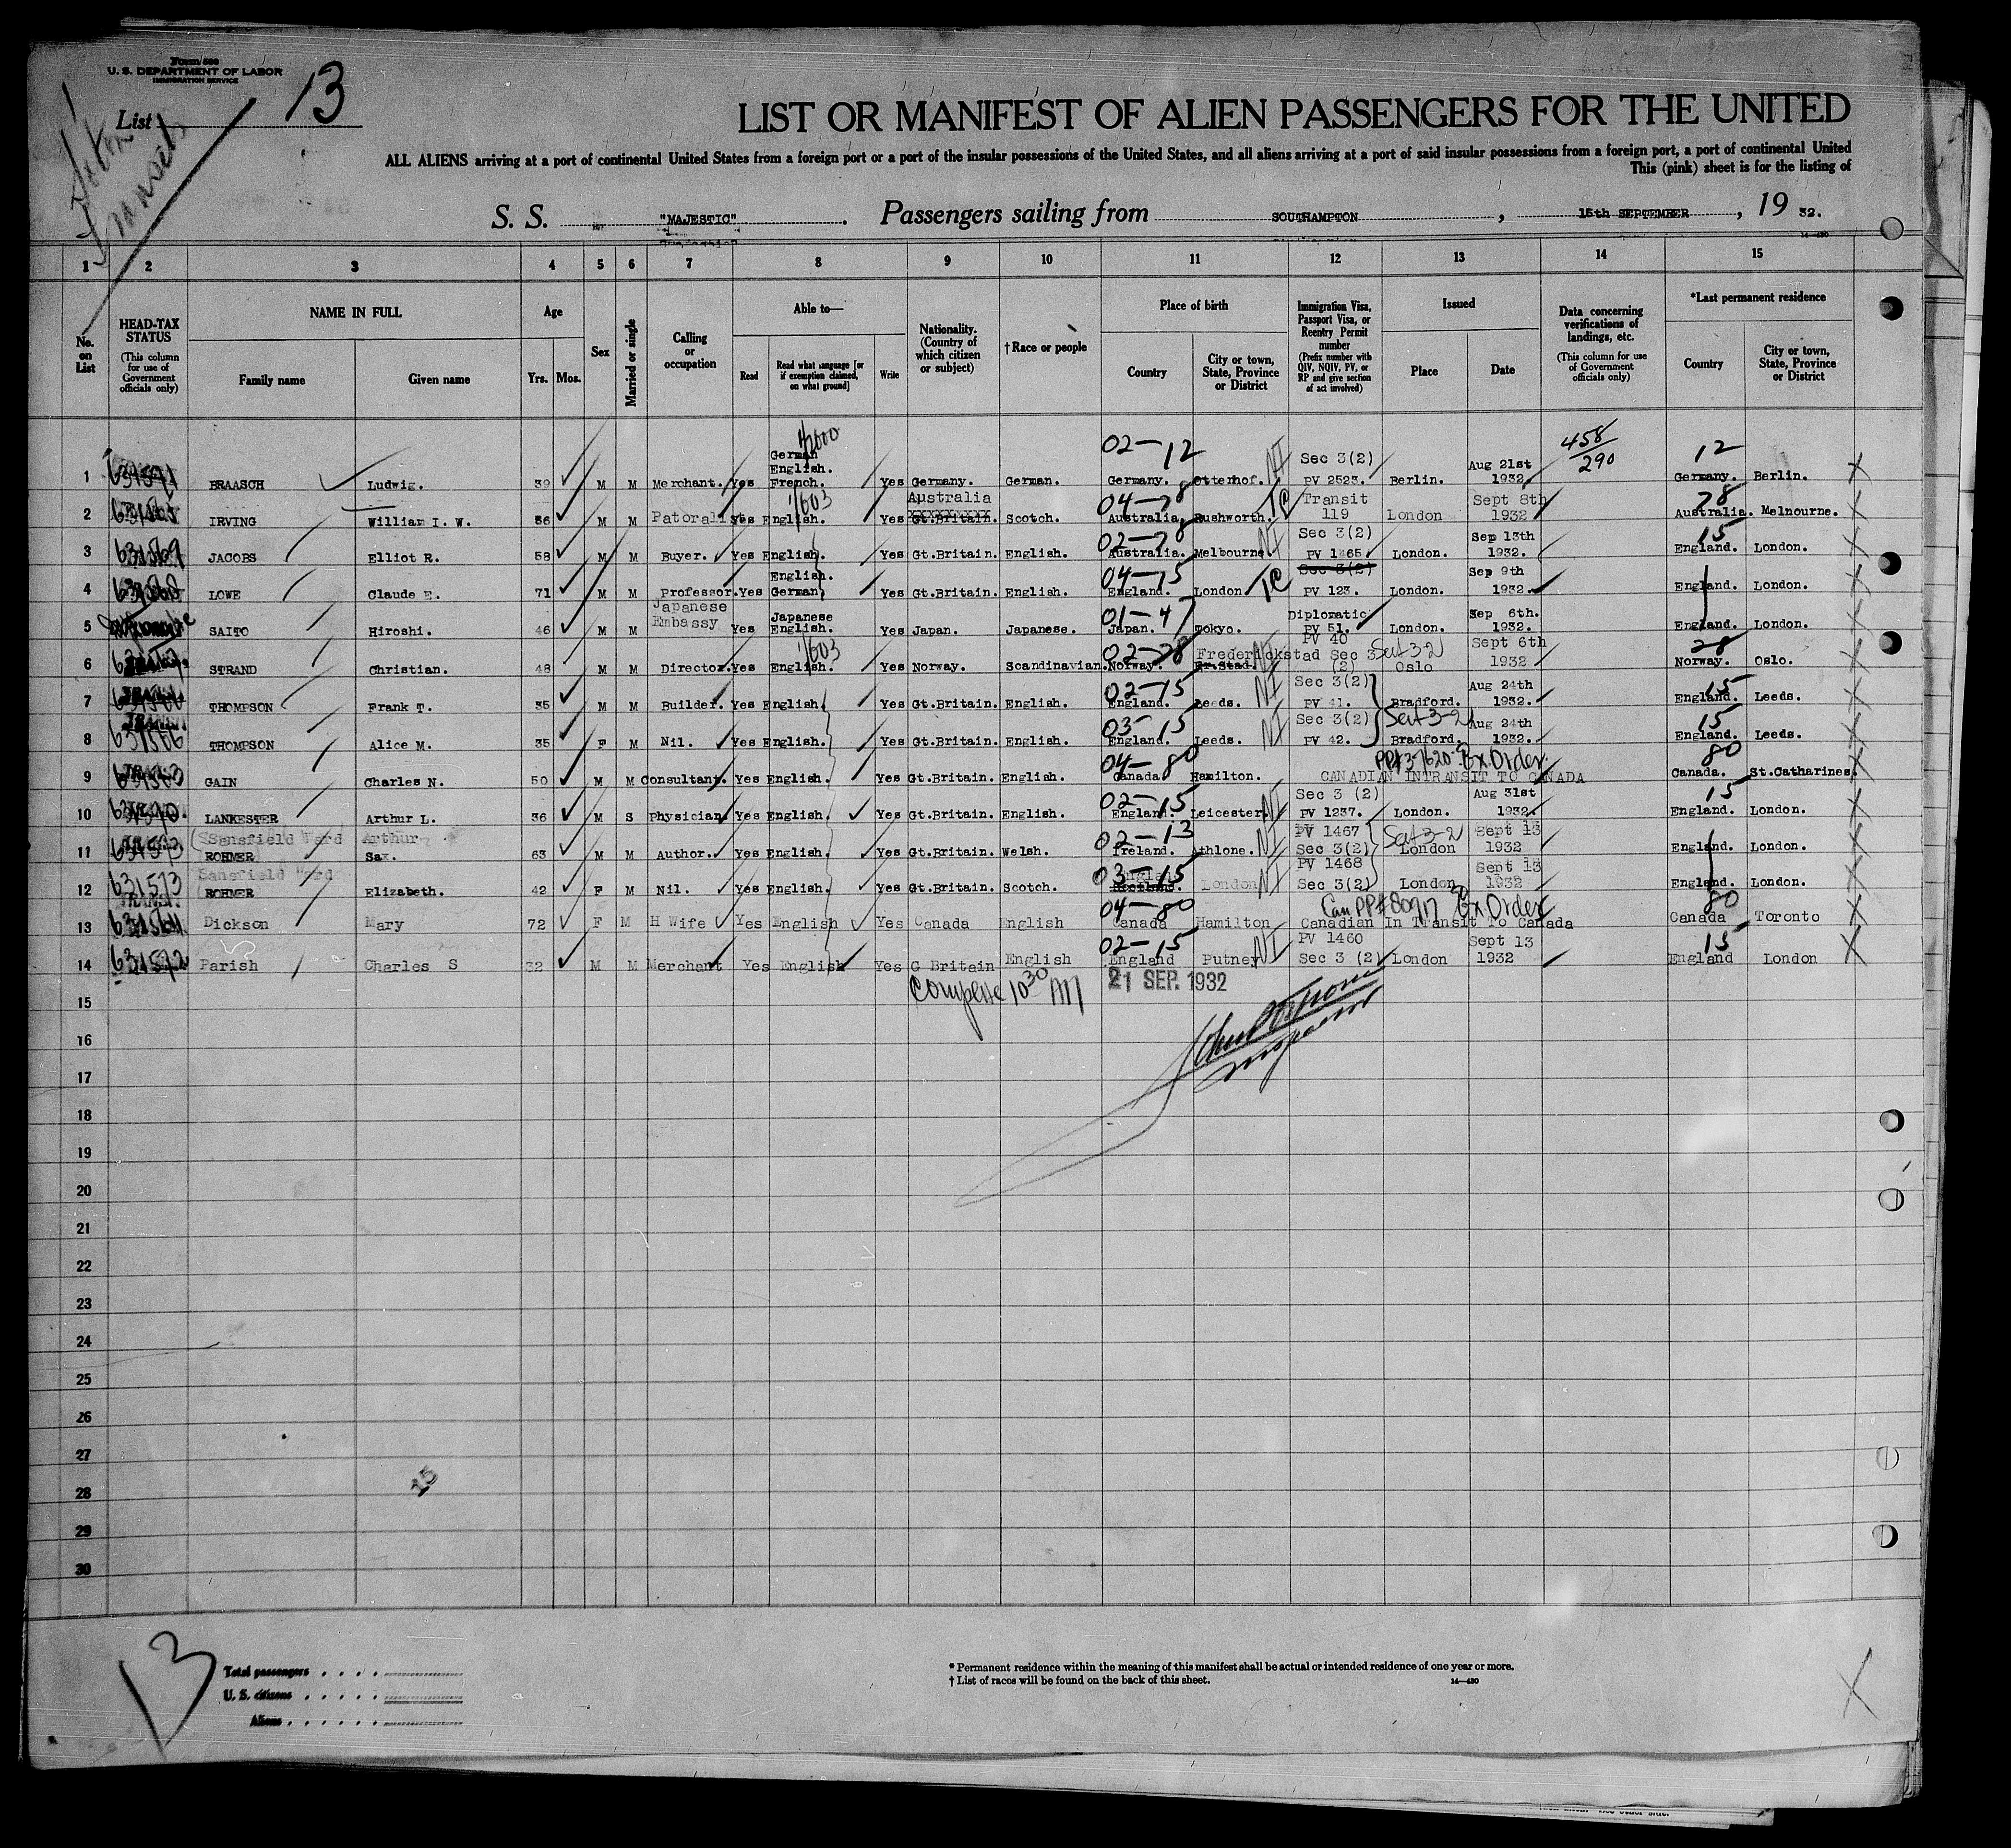 Form 500
U. S. DEPARTMENT OF LABOR
IMMIGRATION SERVICE
List 13
LIST OR MANIFEST OF ALIEN PASSENGERS FOR THE UNITED
ALL ALIENS arriving at a port of continental United States from a foreign port or a port of the insular possessions of the United States, and all aliens arriving at a port of said insular possessions from a foreign port, a port of continental United
This (pink) sheet is for the listing of
S. S. "MAJESTIC" . Passengers sailing from SOUTHAMPTON , 15th SEPTEMBER , 19 32.
1 2 3 4 5 6 7 8 9 10 11 12 13 14 15
No. on List
HEAD-TAX STATUS (This column for use of Government officials only)
NAME IN FULL Family name Given name
Age Yrs. Mos.
Sex
Married or single
Calling or occupation
Able to— Read Read what language [or if exemption claimed, on what ground] Write
Nationality. (Country of which citizen or subject)
†Race or people
Place of birth Country City or town, State, Province or District
Immigration Visa, Passport Visa, or Reentry Permit number (Prefix number with QIV, NQIV, PV, or RP and give section of act involved)
Issued Place Date
Data concerning verifications of landings, etc. (This column for use of Government officials only)
*Last permanent residence Country City or town, State, Province or District
1 BRAASCH Ludwig. 39 M M Merchant. Yes German English. French. Yes Germany. German. 02-12 Germany. Otterhof. NI Sec 3(2) PV 2523. Berlin. Aug 21st 1932. 458/290 12 Germany. Berlin.
2 IRVING William I. W. 56 M M Patoralist Yes English. 1/603 Yes Australia Gt.Britain. Scotch. Australia. Rushworth. TC Transit 119 London Sept 8th 1932 28 Australia. Melnourne.
3 JACOBS Elliot R. 58 M M Buyer. Yes English. Yes Gt.Britain. English. 02-28 Australia. Melbourne NI Sec 3(2) PV 1465. London. Sep 13th 1932. 15 England. London.
4 LOWE Claude E. 71 M M Professor. Yes English. German. Yes Gt.Britain. English. 04-15 England. London TC Sec 3(2) PV 123. London. Sep 9th 1932. England. London.
5 SAITO Hiroshi. 46 M M Japanese Embassy Yes Japanese English. Yes Japan. Japanese. 01-47 Japan. Tokyo. Diplomatic PV 51. London. Sep 6th. 1932. England. London.
6 STRAND Christian. 48 M M Director. Yes English. 1/603 Yes Norway. Scandinavian. 02-28 Norway. Frederickstad Fr.stad. PV 40 Sec 3 (2) Sect 3-2 Oslo Sept 6th 1932 28 Norway. Oslo.
7 THOMPSON Frank T. 35 M M Builder. Yes English. Yes Gt.Britain. English. 02-15 England. Leeds. NI Sec 3(2) PV 41. Bradford. Aug 24th 1932. 15 England. Leeds.
8 THOMPSON Alice M. 35 F M Nil. Yes English. Yes Gt.Britain. English. 03-15 England. Leeds. NI Sec 3(2) PV 42. Sect 3-2 Bradford. Aug 24th 1932. 15 England. Leeds.
9 GAIN Charles N. 50 M M Consultant. Yes English. Yes Gt.Britain. English. 04-80 Canada Hamilton. Ex. Order CANADIAN INTRANSIT TO CANADA 80 Canada. St.Catharines.
10 LANKESTER Arthur L. 36 M S Physician. Yes English. Yes Gt.Britain. English. 02-15 England. Leicester. NI Sec 3 (2) PV 1237. London. Aug 31st 1932. 15 England. London.
11 (Sansfield Ward Arthur ROHMER Sax. 63 M M Author. Yes English. Yes Gt.Britain. Welsh. 02-13 Ireland. Athlone. NI PV 1467 Sec 3(2) Sect 3-2 London Sept 13 1932 England. London.
12 631573 Sansfield Ward ROHMER Elizabeth. 42 F M Nil. Yes English. Yes Gt.Britain. Scotch. 03-15 Scotland. London NI PV 1468 Sec 3(2) London Sept 13 1932 England. London.
13 Dickson Mary 72 F M H Wife Yes English Yes Canada English 04-80 Canada Hamilton Can PP# 80917 Ex. Order Canadian In Transit To Canada 80 Canada Toronto
14 631572 Parish Charles S 32 M M Merchant Yes English Yes G Britain English 02-15 England Putney NI PV 1460 Sec 3 (2) London Sept 13 1932 15 England London
15 Complete 10 30 AM 21 SEP. 1932
16
Inspector
17
18
19
20
21
22
23
24
25
26
27
28
29
30
13
Total passengers
U. S. citizens
Aliens
* Permanent residence within the meaning of this manifest shall be actual or intended residence of one year or more.
† List of races will be found on the back of this sheet.
14—430